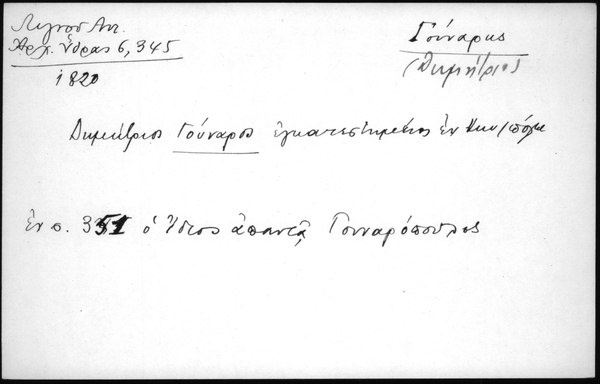 Λιγνοῦ Αντ.
Ἀρχ. Ὕδρας 6, 345
1820
Γούναρης
(Δημήτριος)
Δημήτριος Γούναρης ἐγκατεστημένος ἐν Κων/πόλει
ἐν σ. 351 ὁ ἴδιος ἀπαντᾷ Γουναρόπουλος